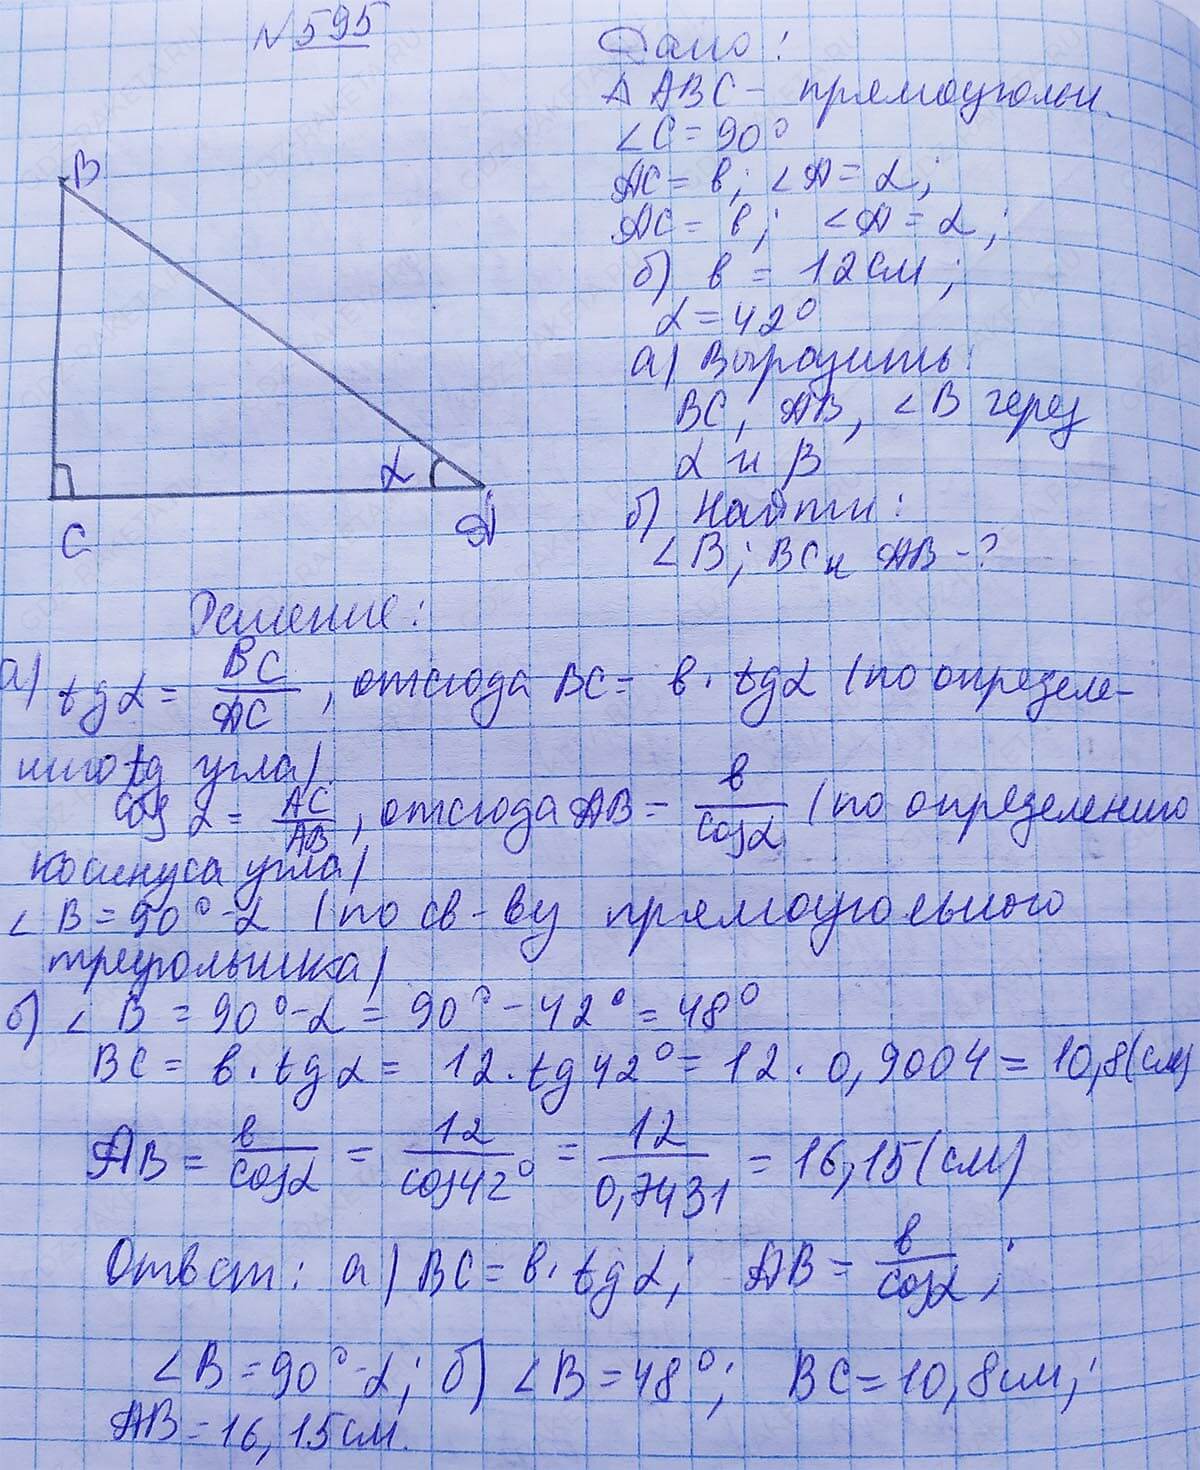 №595
Дано:
Δ ABC - прямоугольн.
∠C = 90°
AC = b; ∠A = α;
AC = b; ∠A = α;
б) b = 12 см;
α = 42°
а) Выразить:
BC, AB, ∠B через
α и B
б) Найти:
∠B; BC и AB - ?
B
α
C
A
Решение:
а) tg α = BC/AC, отсюда BC = b · tg α (по определе-
нию tg угла).
cos α = AC/AB, отсюда AB = b/cos α (по определению
косинуса угла)
∠B = 90° - α (по св-ву прямоугольного
треугольника)
б) ∠B = 90° - α = 90° - 42° = 48°
BC = b · tg α = 12 · tg 42° = 12 · 0,9004 = 10,8 (см)
AB = b/cos α = 12/cos 42° = 12/0,7431 = 16,15 (см)
Ответ: а) BC = b · tg α; AB = b/cos α;
∠B = 90° - α; б) ∠B = 48°; BC = 10,8 см;
AB = 16,15 см.